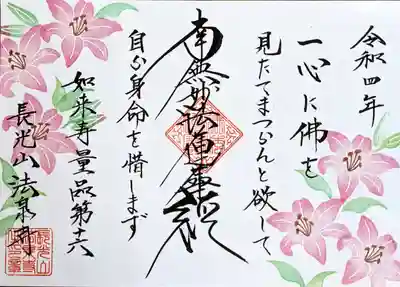 令和四年
一心に佛を
見たてまつらんと欲して
南無妙法蓮華経
自ら身命を惜しまず
如来寿量品第十六
長光山 法泉寺